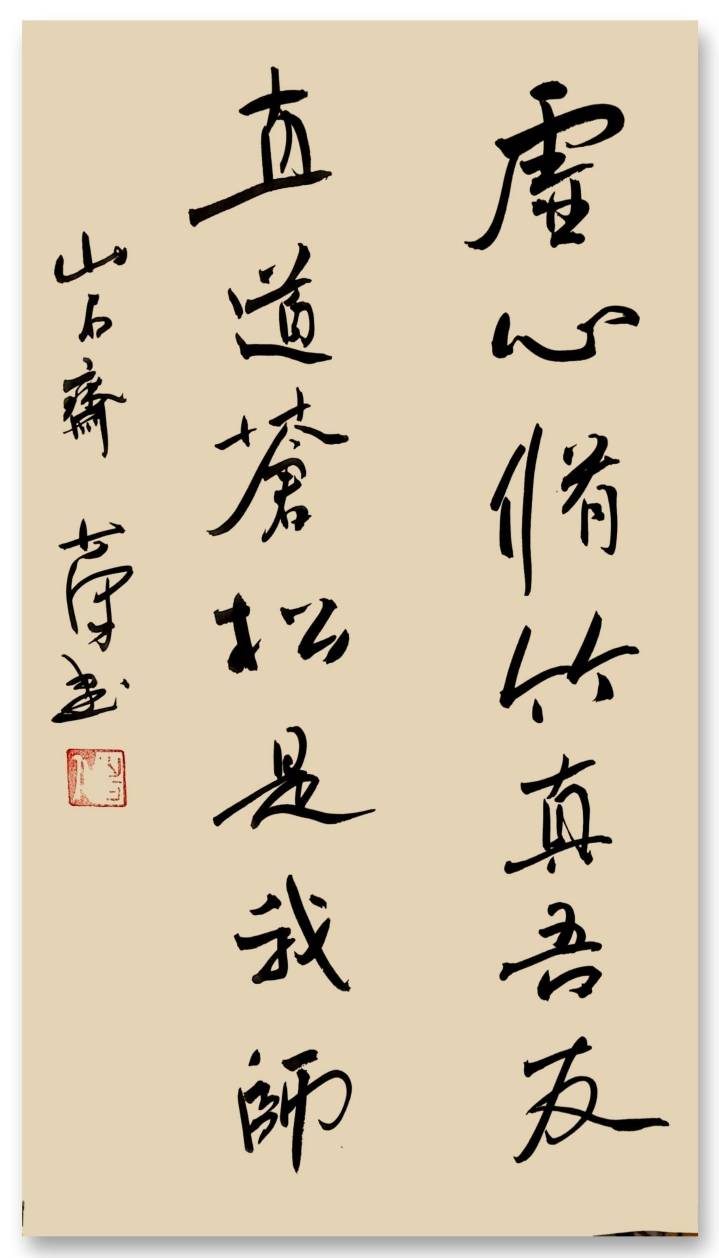 虛心脩竹真吾友
直道蒼松是我師
山石齋 榮書